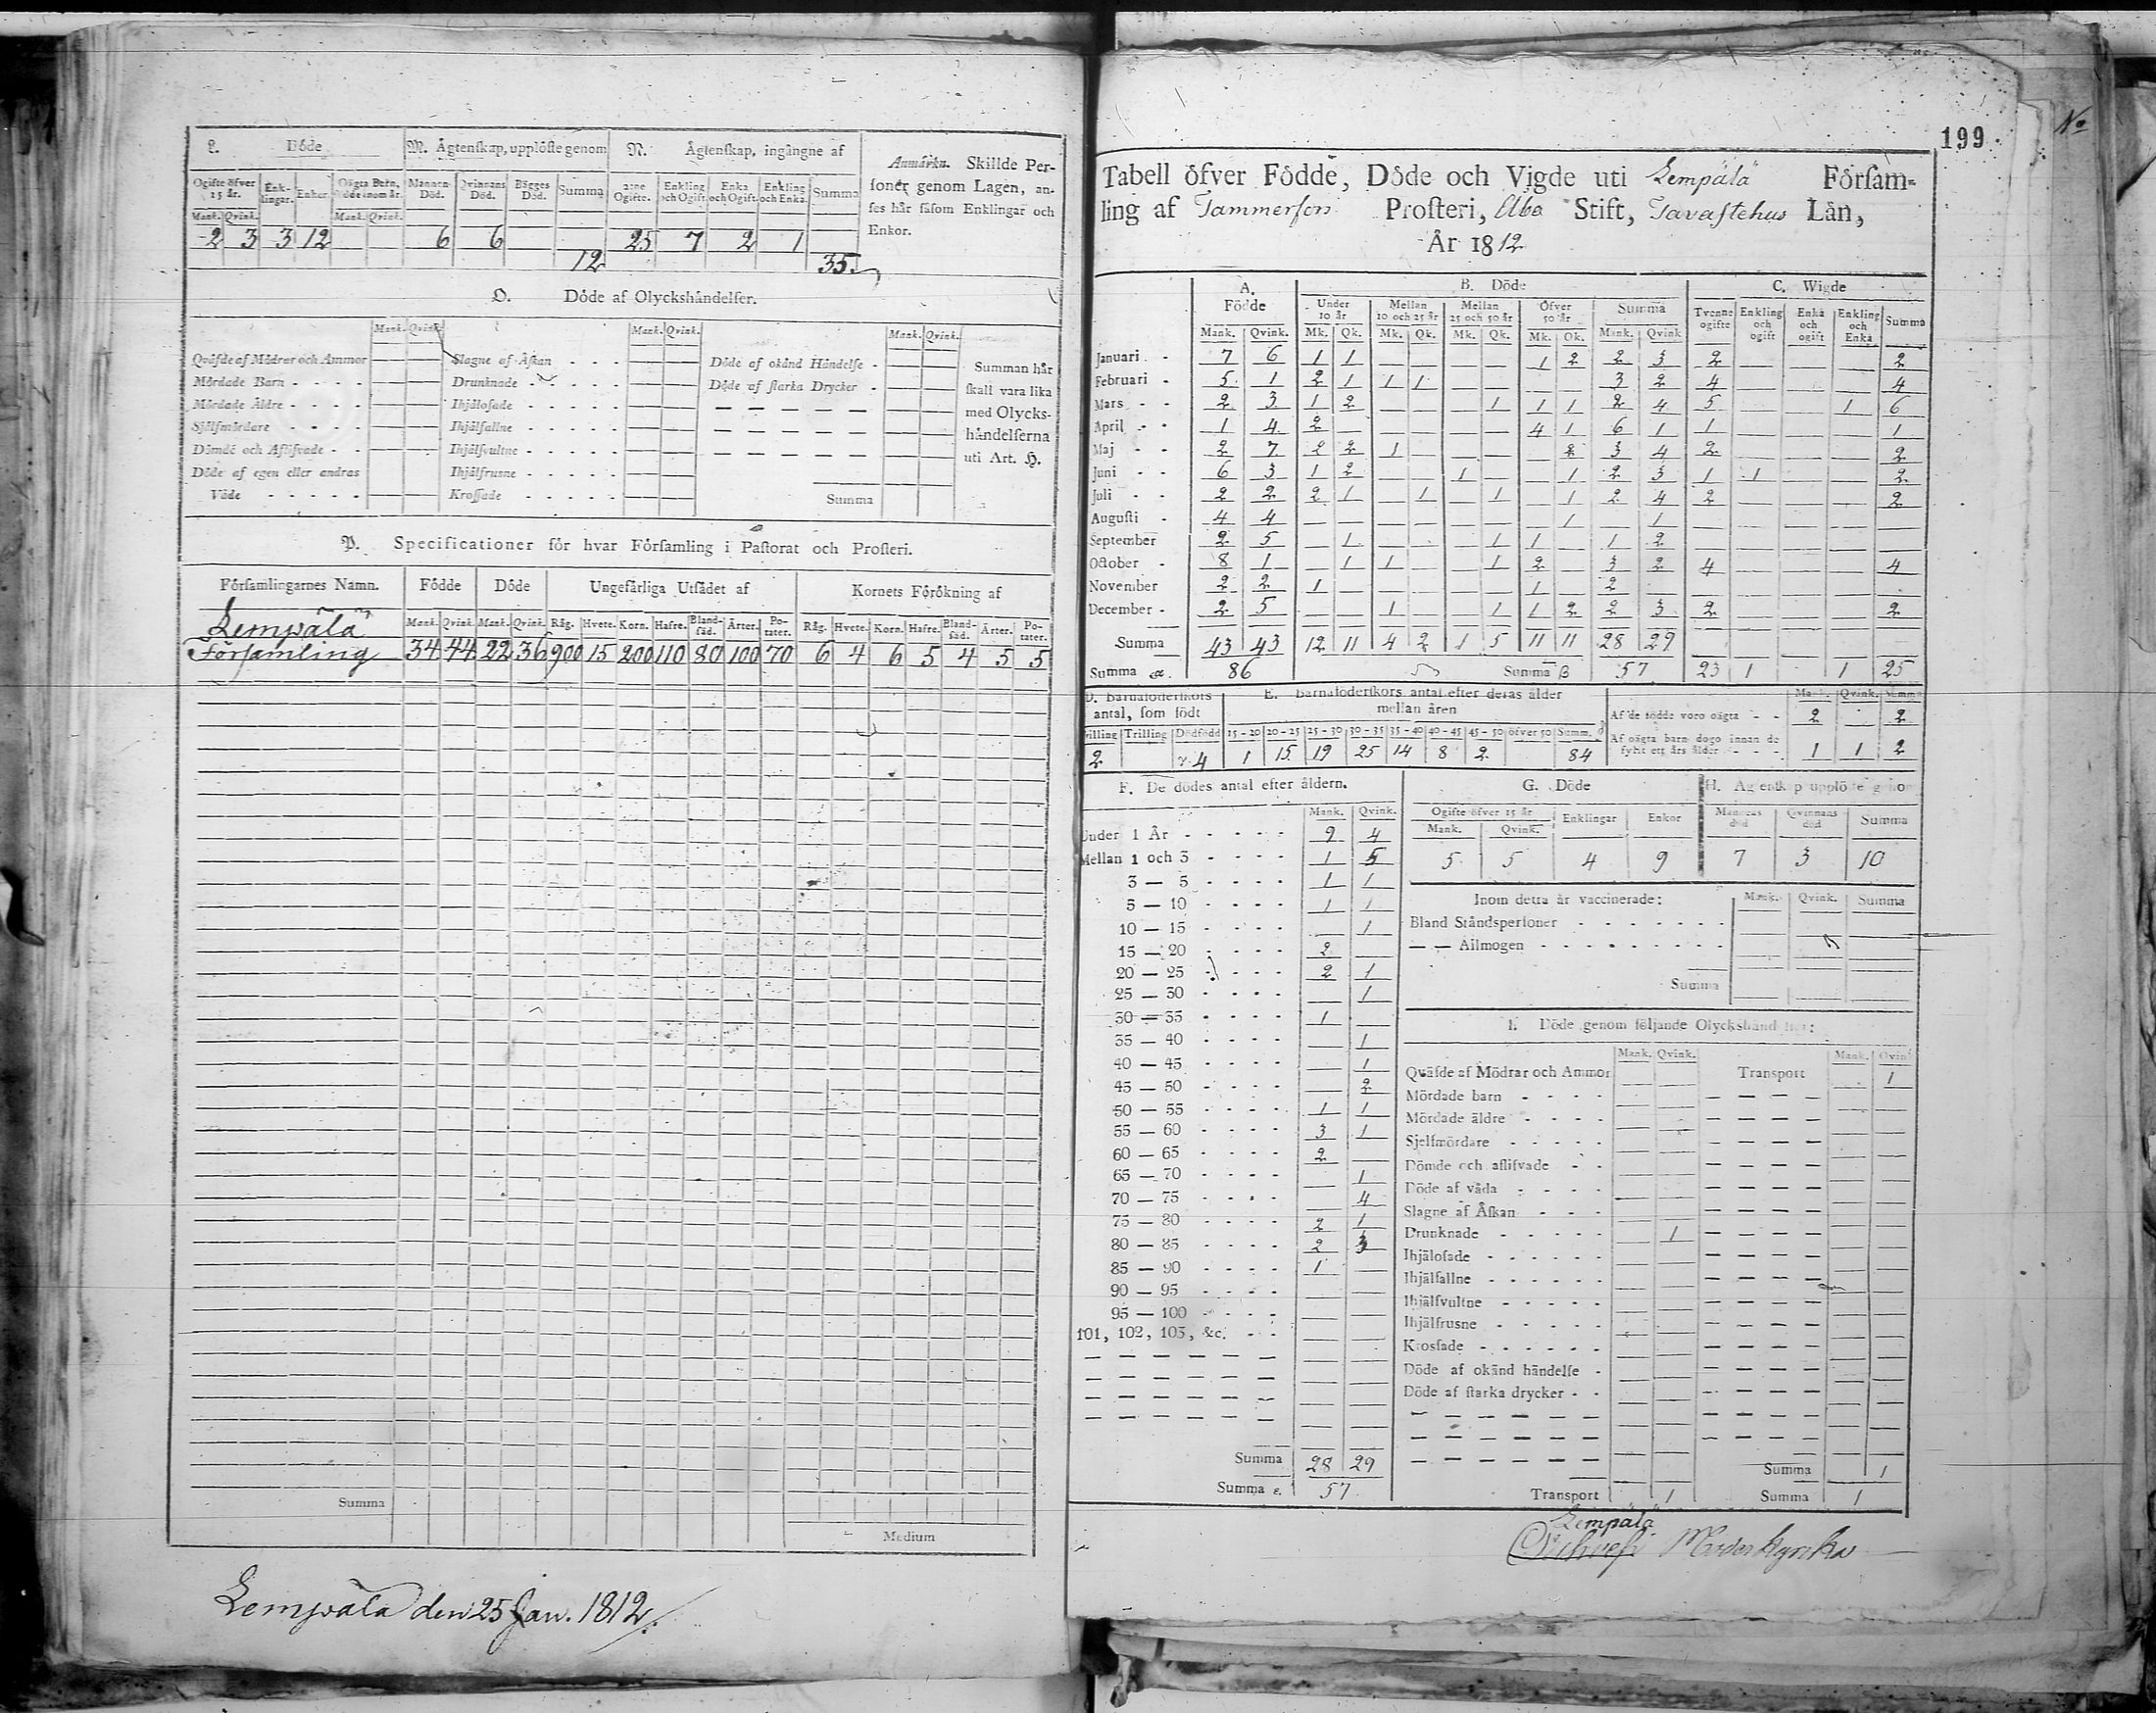 L. Döde
M. Ägtenskap, upplöste genom
N. Ägtenskap, ingångne af
Anmärkn. Skillde Personer genom Lagen, anses här såsom Enklingar och Enkor.
Ogifte öfver 15 år. Enklingar. Enkor Oägta Barn, döde inom år. Mannens Död. Qvinnans Död. Bägges Död. Summa
Ogifte. Enkling och Ogift. Enka och Ogift. Enkling och Enka. Summa
Mank. Qvink. Mank. Qvink.
2 3 3 12 6 6 12 25 7 2 1 35
O. Döde af Olyckshändelser.
Mank. Qvink. Mank. Qvink. Mank. Qvink.
Qväfde af Mödrar och Ammor Slagne af Åskan Döde af okänd Händelse
Mördade Barn Drunknade Döde af starka Drycker
Mördade Äldre Ihjälosade
Sjelfmördare Ihjälfallne
Dömde och Aflifvade Ihjälsvultne
Döde af egen eller andras Våde Ihjälfrusne
Krossade Summa
Summan här skall vara lika med Olyckshändelserna uti Art. H.
P. Specificationer för hvar Församling i Pastorat och Prosteri.
Församlingarnes Namn. Födde Döde Ungefärliga Utsädet af Kornets Förökning af
Mank. Qvink. Mank. Qvink. Råg. Hvete. Korn. Hafre. Blandsäd. Ärter. Potater. Råg. Hvete. Korn. Hafre. Blandsäd. Ärter. Potater.
Lempälä
Församling 34 44 22 36 900 15 200 110 80 100 70 6 4 6 5 4 5 5
Summa
Medium
Lempälä den 25 Jan. 1812.
199
No
Tabell öfver Födde, Döde och Vigde uti Lempälä Församling af Tammerfors Prosteri, Åbo Stift, Tavastehus Län,
År 1812
A. Födde B. Döde C. Wigde
Under 10 år Mellan 10 och 25 år Mellan 25 och 50 år Öfver 50 år Summa Tvenne ogifte Enkling och ogift Enka och ogift Enkling och Enka Summa
Mank. Qvink. Mk. Qk. Mk. Qk. Mk. Qk. Mk. Qk. Mank. Qvink
Januari 7 6 1 1 1 2 2 3 2 2
Februari 5 1 2 1 1 1 3 2 4 4
Mars 2 3 1 2 1 1 1 2 4 5 1 6
April 1 4 2 4 1 6 1 1 1
Maj 2 7 2 2 1 2 3 4 2 2
Juni 6 3 1 2 1 1 2 3 1 1 2
Juli 2 2 2 1 1 1 1 2 4 2 2
Augusti 4 4 1 1
September 2 5 1 1 1 1 2
October 8 1 1 1 1 2 3 2 4 4
November 2 2 1 1 2
December 2 5 1 1 1 2 2 3 2 2
Summa 43 43 12 11 4 2 1 5 11 11 28 29
Summa α. 86 Summa β 57 23 1 1 25
D. Barnaföderskors antal, som födt
E. Barnaföderskors antal efter deras ålder mellan åren
Mank. Qvink. Summa
Tvilling Trilling Dödfödd 15 - 20 20 - 25 25 - 30 30 - 35 35 - 40 40 - 45 45 - 50 öfver 50 Summ.
2 4 1 15 19 25 14 8 2 84
Af de födde voro oägta 2 2
Af oägta barn dogo innan de fyllt ett års ålder 1 1 2
F. De dödes antal efter åldern.
Mank. Qvink.
Under 1 År 9 4
Mellan 1 och 3 1 5
3 — 5 1 1
5 — 10 1 1
10 — 15 1
15 — 20 2
20 — 25 2 1
25 — 30 1
30 — 35 1
35 — 40 1
40 — 45 1
45 — 50 2
50 — 55 1 1
55 — 60 3 1
60 — 65 2
65 — 70 1
70 — 75 4
75 — 80 2 1
80 — 85 2 3
85 — 90 1
90 — 95
95 — 100
101, 102, 103, &c.
Summa 28 29
Summa ε. 57
G. Döde
H. Ägtenskap upplöste genom
Ogifte öfver 15 år Enklingar Enkor Mannens död Qvinnans död Summa
Mank. Qvink.
5 5 4 9 7 3 10
Inom detta år vaccinerade: Mank. Qvink. Summa
Bland Ståndspersoner
— — Allmogen
Summa
I. Döde genom följande Olyckshändelser:
Mank. Qvink. Mank. Qvink
Qväfde af Mödrar och Ammor Transport 1
Mördade barn
Mördade äldre
Sjelfmördare
Dömde och aflifvade
Döde af våda
Slagne af Åskan
Drunknade 1
Ihjälosade
Ihjälfallne
Ihjälsvultne
Ihjälfrusne
Krossade
Döde af okänd händelse
Döde af starka drycker
Summa 1
Transport 1 Summa 1
Lempälä
Moderkyrka